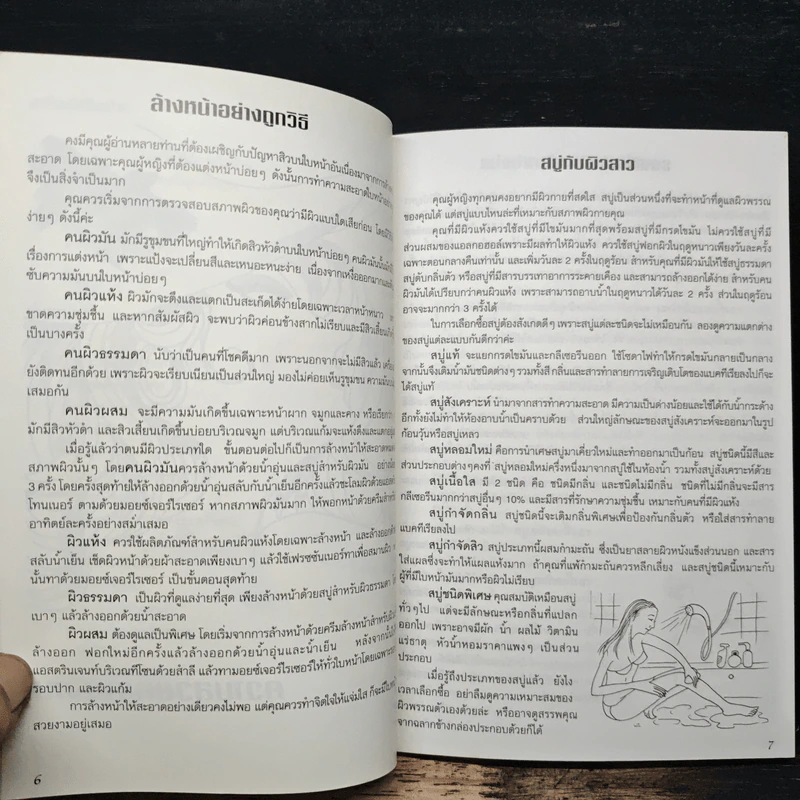 ล้างหน้าอย่างถูกวิธี
คงมีคุณผู้อ่านหลายท่านที่ต้องเผชิญกับปัญหาสิวบนใบหน้าอันเนื่องมาจากการล้าง
สะอาด โดยเฉพาะคุณผู้หญิงที่ต้องแต่งหน้าบ่อยๆ ดังนั้นการทำความสะอาดใบหน้าอย่าง
จึงเป็นสิ่งจำเป็นมาก
คุณควรเริ่มจากการตรวจสอบสภาพผิวของคุณว่ามีผิวแบบใดเสียก่อน โดย
ง่ายๆ ดังนี้ค่ะ
คนผิวมัน มักมีรูขุมขนที่ใหญ่ทำให้เกิดสิวหัวดำบนใบหน้าบ่อยๆ คนผิวมันนั้น
เรื่องการแต่งหน้า เพราะแป้งจะเปลี่ยนสีและเหนอะหนะง่าย เนื่องจากเหงื่อออกมาก
ซับความมันบนใบหน้าบ่อยๆ
คนผิวแห้ง ผิวมักจะตึงและแตกเป็นสะเก็ดได้ง่ายโดยเฉพาะเวลาหน้าหนาว
ขาดความชุ่มชื้น และหากสัมผัสผิว จะพบว่าผิวค่อนข้างสากไม่เรียบและมีสิวเสี้ยน
เป็นบางครั้ง
คนผิวธรรมดา นับว่าเป็นคนที่โชคดีมาก เพราะนอกจากจะไม่มีสิวแล้ว
ยังติดทนอีกด้วย เพราะผิวจะเรียบเนียนเป็นส่วนใหญ่ มองไม่ค่อยเห็นรูขุมขน ความมัน
เสมอกัน
คนผิวผสม จะมีความมันเกิดขึ้นเฉพาะหน้าผาก จมูกและคาง หรือเรียก
มักมีสิวหัวดำ และสิวเสี้ยนเกิดขึ้นบ่อยบริเวณจมูก แต่บริเวณแก้มจะแห้งตึงและแตก
เมื่อรู้แล้วว่าตนมีผิวประเภทใด ขั้นตอนต่อไปก็เป็นการล้างหน้าให้สะอาด
สภาพผิวนั้นๆ โดยคนผิวมันควรล้างหน้าด้วยน้ำอุ่นและสบู่สำหรับผิวมัน
3 ครั้ง โดยครั้งสุดท้ายให้ล้างออกด้วยน้ำอุ่นสลับกับน้ำเย็นอีกครั้งแล้วชะโลมผิวด้วย
โทนเนอร์ ตามด้วยมอยซ์เจอร์ไรเซอร์ หากสภาพผิวมันมาก ให้พอกหน้าด้วยครีมสำหรับ
อาทิตย์ละครั้งอย่างสม่ำเสมอ
ผิวแห้ง ควรใช้ผลิตภัณฑ์สำหรับคนผิวแห้งโดยเฉพาะล้างหน้า และล้างออก
สลับน้ำเย็น เช็ดผิวหน้าด้วยผ้าสะอาดเพียงเบาๆ แล้วใช้เฟรชชันเนอร์ทาเพื่อสมานผิว
นั้นทาด้วยมอยซ์เจอร์ไรเซอร์ เป็นขั้นตอนสุดท้าย
ผิวธรรมดา เป็นผิวที่ดูแลง่ายที่สุด เพียงล้างหน้าด้วยสบู่สำหรับผิวธรรมดา
เบาๆ แล้วล้างออกด้วยน้ำสะอาด
ผิวผสม ต้องดูแลเป็นพิเศษ โดยเริ่มจากการล้างหน้าด้วยครีมล้างหน้าสำหรับ
ล้างออก ฟอกใหม่อีกครั้งแล้วล้างออกด้วยน้ำอุ่นและน้ำเย็น หลังจากนั้น
แอสตริงเจนท์บริเวณทีโซนด้วยสำลี แล้วทามอยซ์เจอร์ไรเซอร์ให้ทั่วใบหน้าโดยเฉพาะ
รอบปาก และผิวแก้ม
การล้างหน้าให้สะอาดอย่างเดียวคงไม่พอ แต่คุณควรทำจิตใจให้แจ่มใส ก็จะมี
สวยงามอยู่เสมอ
6
สบู่กับผิวสาว
คุณผู้หญิงทุกคนคงอยากมีผิวกายที่สดใส สบู่เป็นส่วนหนึ่งที่จะทำหน้าที่ดูแลผิวพรรณ
ของคุณได้ แต่สบู่แบบไหนล่ะที่เหมาะกับสภาพผิวกายคุณ
คุณที่มีผิวแห้งควรใช้สบู่ที่มีไขมันมากที่สุดพร้อมสบู่ที่มีกรดไขมัน ไม่ควรใช้สบู่ที่มี
ส่วนผสมของแอลกอฮอล์เพราะมีผลทำให้ผิวแห้ง ควรใช้สบู่ฟอกผิวในฤดูหนาวเพียงวันละครั้ง
เฉพาะตอนกลางคืนเท่านั้น และเพิ่มวันละ 2 ครั้งในฤดูร้อน สำหรับคุณที่มีผิวมันให้ใช้สบู่ธรรมดา
สบู่ดับกลิ่นตัว หรือสบู่ที่มีสารบรรเทาอาการระคายเคือง และสามารถล้างออกได้ง่าย สำหรับคน
ผิวมันได้เปรียบกว่าคนผิวแห้ง เพราะสามารถอาบน้ำในฤดูหนาวได้วันละ 2 ครั้ง ส่วนในฤดูร้อน
อาจจะมากกว่า 3 ครั้งได้
ในการเลือกซื้อสบู่ต้องสังเกตดีๆ เพราะสบู่แต่ละชนิดจะไม่เหมือนกัน ลองดูความแตกต่าง
ของสบู่แต่ละแบบกันดีกว่าค่ะ
สบู่แท้ จะแยกกรดไขมันและกลีเซอรีนออก ใช้โซดาไฟทำให้กรดไขมันกลายเป็นกลาง
จากนั้นจึงเติมน้ำมันชนิดต่างๆ รวมทั้งสี กลิ่นและสารทำลายการเจริญเติบโตของแบคทีเรียลงไปก็จะ
ได้สบู่แท้
สบู่สังเคราะห์ นำมาจากสารทำความสะอาด มีความเป็นด่างน้อยและใช้ได้กับน้ำกระด้าง
อีกทั้งยังไม่ทำให้ห้องอาบน้ำเป็นคราบด้วย ส่วนใหญ่ลักษณะของสบู่สังเคราะห์จะออกมาในรูป
ก้อนวุ้นหรือสบู่เหลว
สบู่หลอมใหม่ คือการนำเศษสบู่มาเคี่ยวใหม่และทำออกมาเป็นก้อน สบู่ชนิดนี้มีสีและ
ส่วนประกอบต่างๆคงที่ สบู่หลอมใหม่ครึ่งหนึ่งมาจากสบู่ใช้ในห้องน้ำ รวมทั้งสบู่สังเคราะห์ด้วย
สบู่เนื้อใส มี 2 ชนิด คือ ชนิดมีกลิ่น และชนิดไม่มีกลิ่น ชนิดที่ไม่มีกลิ่นจะมีสาร
กลีเซอรีนมากกว่าสบู่อื่นๆ 10% และมีสารที่รักษาความชุ่มชื้น เหมาะกับคนที่มีผิวแห้ง
สบู่กำจัดกลิ่น สบู่ชนิดนี้จะเติมกลิ่นพิเศษเพื่อป้องกันกลิ่นตัว หรือใส่สารทำลาย
แบคทีเรียลงไป
สบู่กำจัดสิว สบู่ประเภทนี้ผสมกำมะถัน ซึ่งเป็นยาสลายผิวหนังแข็งส่วนนอก และสาร
ใส่แผลซึ่งจะทำให้แผลแห้งมาก ถ้าคุณที่แพ้กำมะถันควรหลีกเลี่ยง และสบู่ชนิดนี้เหมาะกับ
ผู้ที่มีใบหน้ามันมากหรือผิวไม่เรียบ
สบู่ชนิดพิเศษ คุณสมบัติเหมือนสบู่
ทั่วๆไป แต่จะมีลักษณะหรือกลิ่นที่แปลก
ออกไป เพราะอาจมีผัก น้ำ ผลไม้ วิตามิน
แร่ธาตุ หัวน้ำหอมราคาแพงๆ เป็นส่วน
ประกอบ
เมื่อรู้ถึงประเภทของสบู่แล้ว ยังไง
เวลาเลือกซื้อ อย่าลืมดูความเหมาะสมของ
ผิวพรรณตัวเองด้วยล่ะ หรืออาจดูสรรพคุณ
จากฉลากข้างกล่องประกอบด้วยก็ได้
7